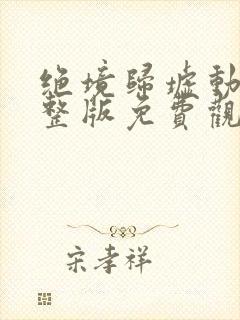 绝境歸墟動
整版免費觀
宋孝祥